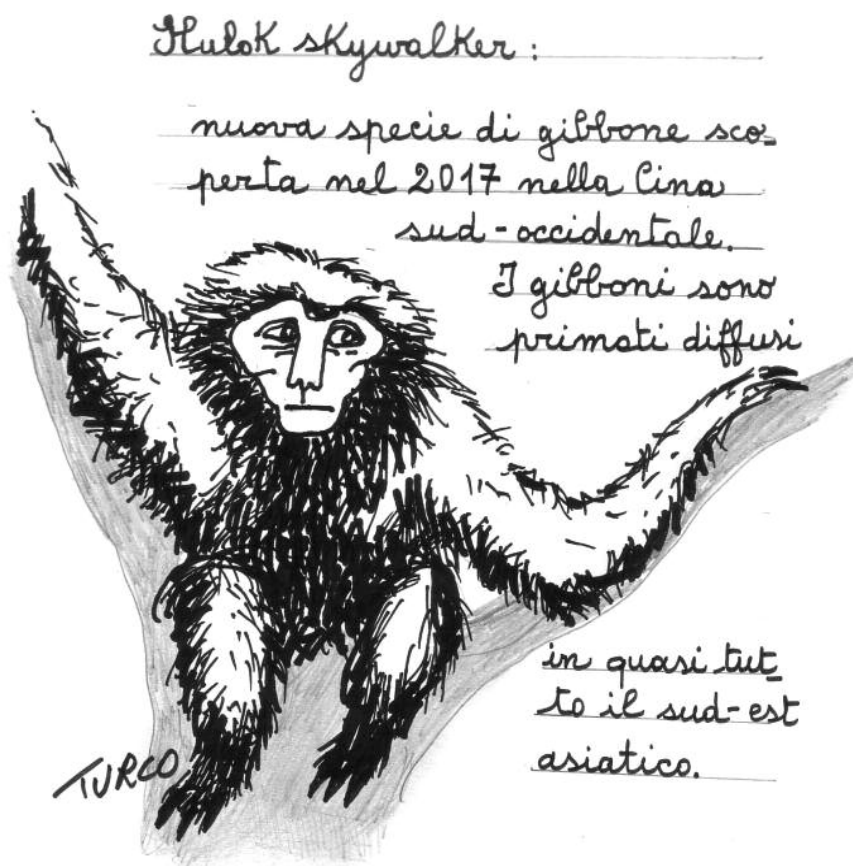 Hulok skywalker:
nuova specie di gibbone sco-
perta nel 2017 nella Cina
sud-occidentale.
I gibboni sono
primati diffusi
in quasi tut-
to il sud-est
asiatico.
TURCO